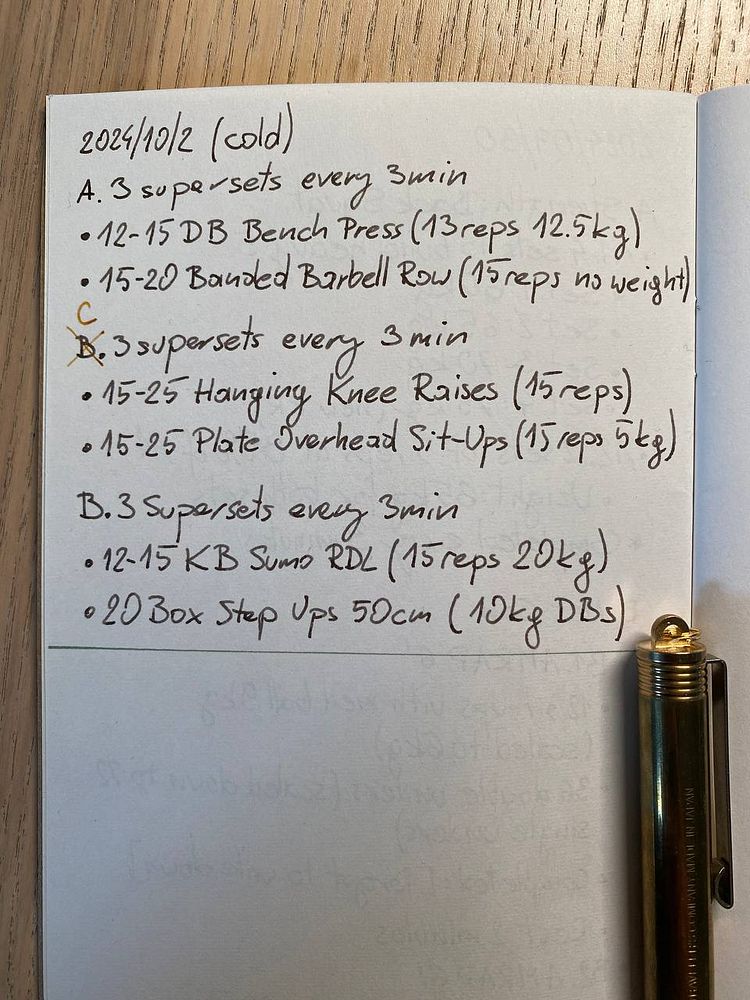 2024/10/2 (cold)
A. 3 supersets every 3min
• 12-15 DB Bench Press (13reps 12.5kg)
• 15-20 Banded Barbell Row (15reps no weight)
C
B. 3 supersets every 3min
• 15-25 Hanging Knee Raises (15reps)
• 15-25 Plate Overhead Sit-Ups (15reps 5kg)
B. 3 Supersets every 3min
• 12-15 KB Sumo RDL (15reps 20kg)
• 20 Box Step Ups 50cm (10kg DBs)
TRAVELER'S COMPANY MADE IN JAPAN